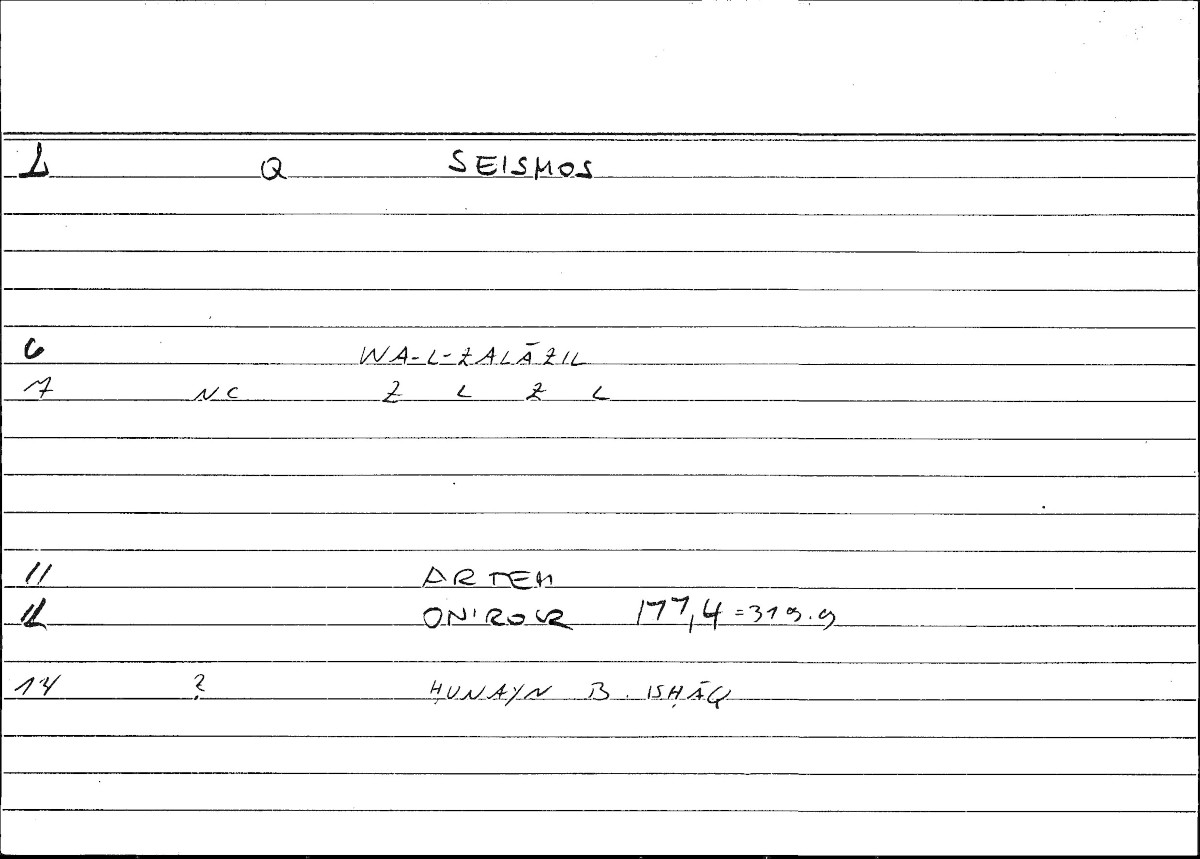 1 Q SEISMOS
6 WA-L-ZALĀZIL
7 NC Z L Z L
11 ARTEM
12 ONIROCR 177,4 = 319.9
14 ? ḤUNAYN B. ISḤĀQ